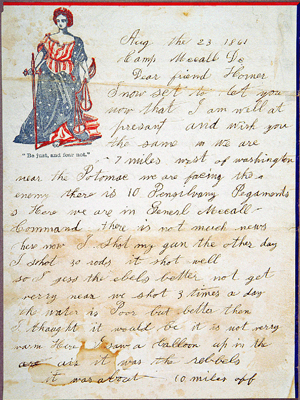 Aug the 23 1861
Camp Mccall Dc
Dear friend Horner
I now set to let you
now that I am well at
presant and wish you
the same we are
"Be just, and fear not."
7 miles west of washington
near the Potomac we are facing the
enemy there is 10 Pensilvany Regaments
is Here we are in Generl Mccall
Command there is not much news
here now I shot my gun the other day
I shot 50 rods it shot well
so I gess the ebels better not get
verry near we shot 3 times a day
the water is Poor but better then
I thaught it would be it is not very
warm Here I saw a Balloon up in the
air it was the rebbels
it was about 10 miles off